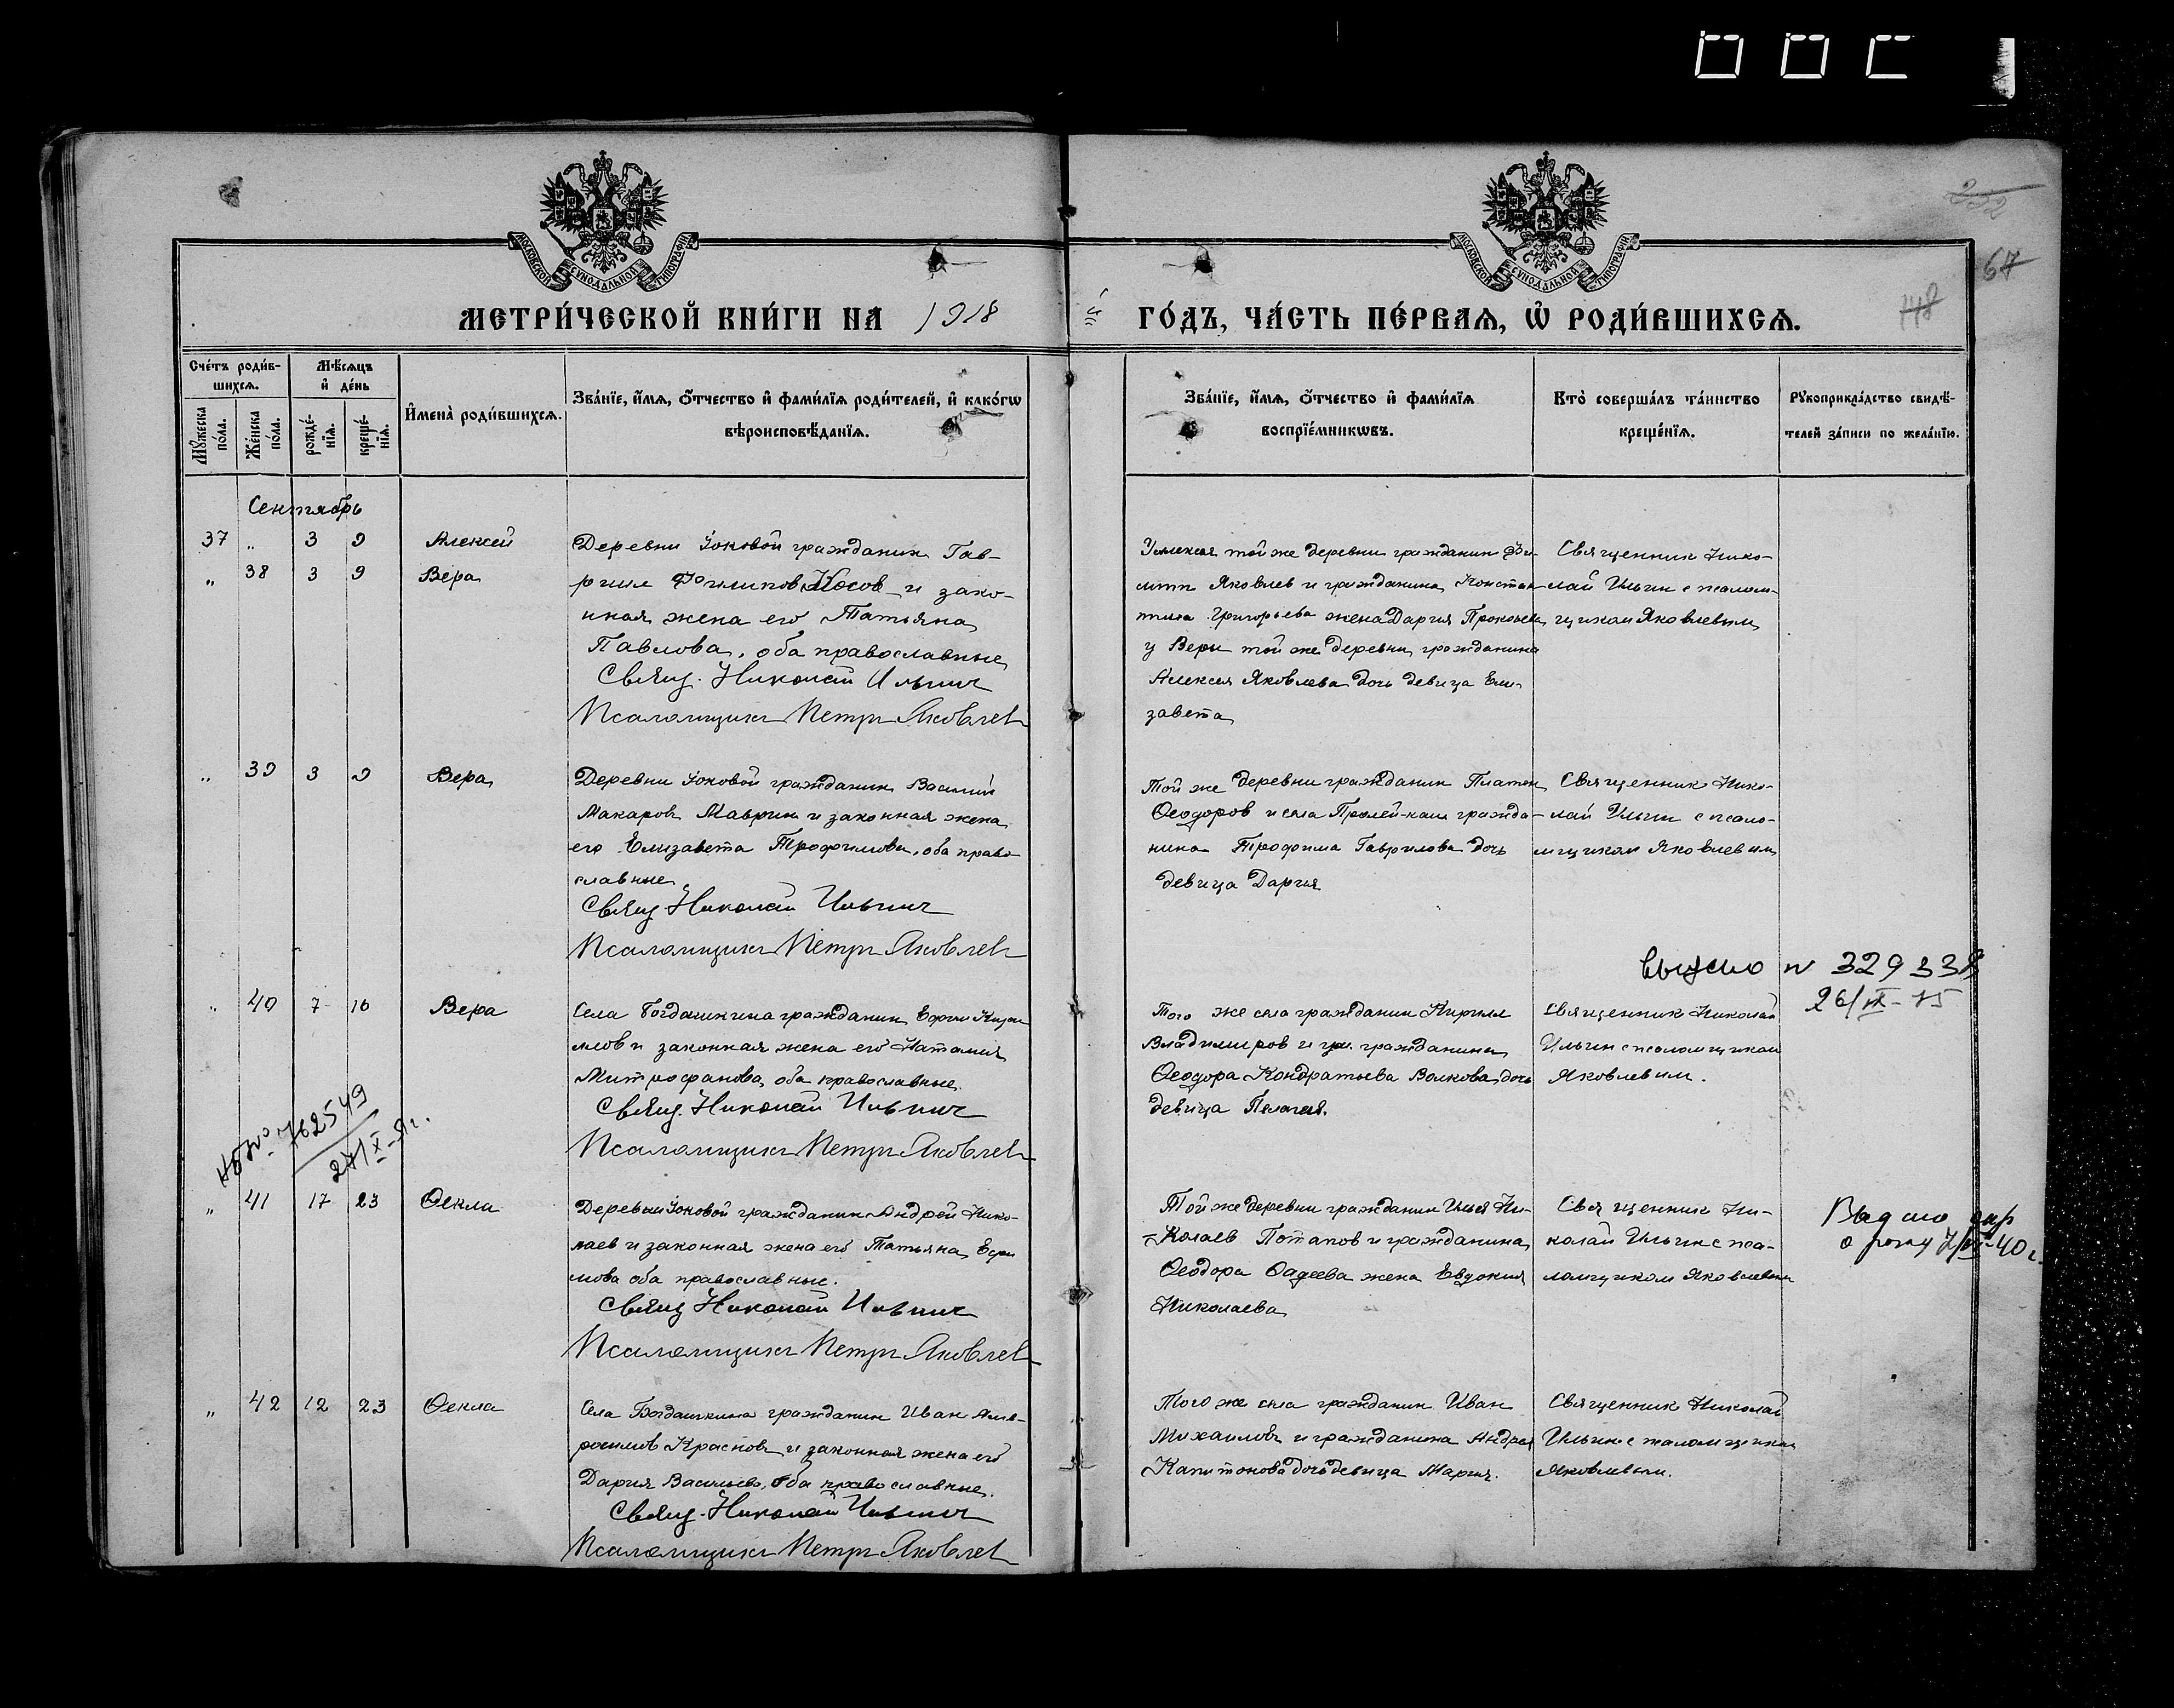 МОСКОВСКОЙ СѴНОДАЛЬНОЙ ТИПОГРАФІИ
МОСКОВСКОЙ СѴНОДАЛЬНОЙ ТИПОГРАФІИ
252
67
148
МЕТРИ́ЧЕСКОЙ КНИ́ГИ НА 1918
ГО́ДЪ, ЧА́СТЬ ПЕ́РВАѦ, Ѡ҆ РОДИ́ВШИХСѦ.
Сче́тъ роди́в-
шихсѧ.
Мꙋ́жеска
по́ла.
Же́нска
по́ла.
Мѣ́сѧцъ
и҆ де́нь
рожде́-
нїѧ.
креще́-
нїѧ.
И҆мена̀ роди́вшихсѧ.
Зва́нїе, и҆́мѧ, ѻ҆́тчество и҆ фами́лїѧ роди́телей, и҆ како́гѡ
вѣроисповѣ́данїѧ.
Зва́нїе, и҆́мѧ, ѻ҆́тчество и҆ фами́лїѧ
воспрїе́мникѡвъ.
Кто̀ соверша́лъ та́инство
креще́нїѧ.
Рꙋкоприкла́дство свидѣ́-
телей за́писи по жела́нїю.
Сентябрь
37 „ 3 9 Алексей
„ 38 3 9 Вера
Деревни гражданин Гав-
рил Филипов Носов и зако-
нная жена его Татьяна
Павлова, оба православные
Свящ. Николай Ильин
Псаломщик Петр Яковлев
У Алексея той же деревни гражданин
Яковлев и гражданина Констан-
тина Григорьева жена Дария Прокопьева
у Веры той же деревни гражданина
Алексея Яковлева дочь девица Ели-
завета
Священник Нико-
лай Ильин с псалом-
щиком Яковлевым
„ 39 3 9 Вера
Деревни гражданин Василий
Макаров Маврин и законная жена
его Елизавета Трофимова, оба право-
славные
Свящ. Николай Ильин
Псаломщик Петр Яковлев
Той же деревни гражданин Платон
Ѳеодоров и села гражда-
нина Трофима Гаврилова дочь
девица Дария
Священник Нико-
лай Ильин с псало-
мщиком Яковлевым
N 329338
26/IX-75
„ 40 7 10 Вера
Села Богдашкина гражданин Ефим
и законная жена его Наталия
Митрофанова, оба православные.
Свящ. Николай Ильин
Псаломщик Петр Яковлев
Того же села гражданин Кирилл
Владимиров и гражданина
Ѳеодора Кондратьева Волкова дочь
девица Пелагея.
Священник Николай
Ильин с псаломщиком
Яковлевым.
№ 762549
27/X
„ 41 17 23 Ѳекла
Деревни гражданин Андрей Нико-
лаев и законная жена его Татьяна Ефи-
мова оба православные.
Свящ Николай Ильин
Псаломщик Петр Яковлев
Той же деревни гражданин Илья Ни-
колаев Потапов и гражданина
Ѳеодора Ѳадеева жена Евдокия
Николаева
Священник Ни-
колай Ильин с пса-
ломщиком Яковлевым
Выдано
40 г.
„ 42 12 23 Ѳекла
Села Богдашкина гражданин Иван Амв-
росимов Краснов и законная жена его
Дария Васильева, оба православные.
Свящ. Николай Ильин
Псаломщик Петр Яковлев
Того же села гражданин Иван
Михаилов и гражданина Андрея
Капитонова дочь девица Мария.
Священник Николай
Ильин с псаломщиком
Яковлевым.